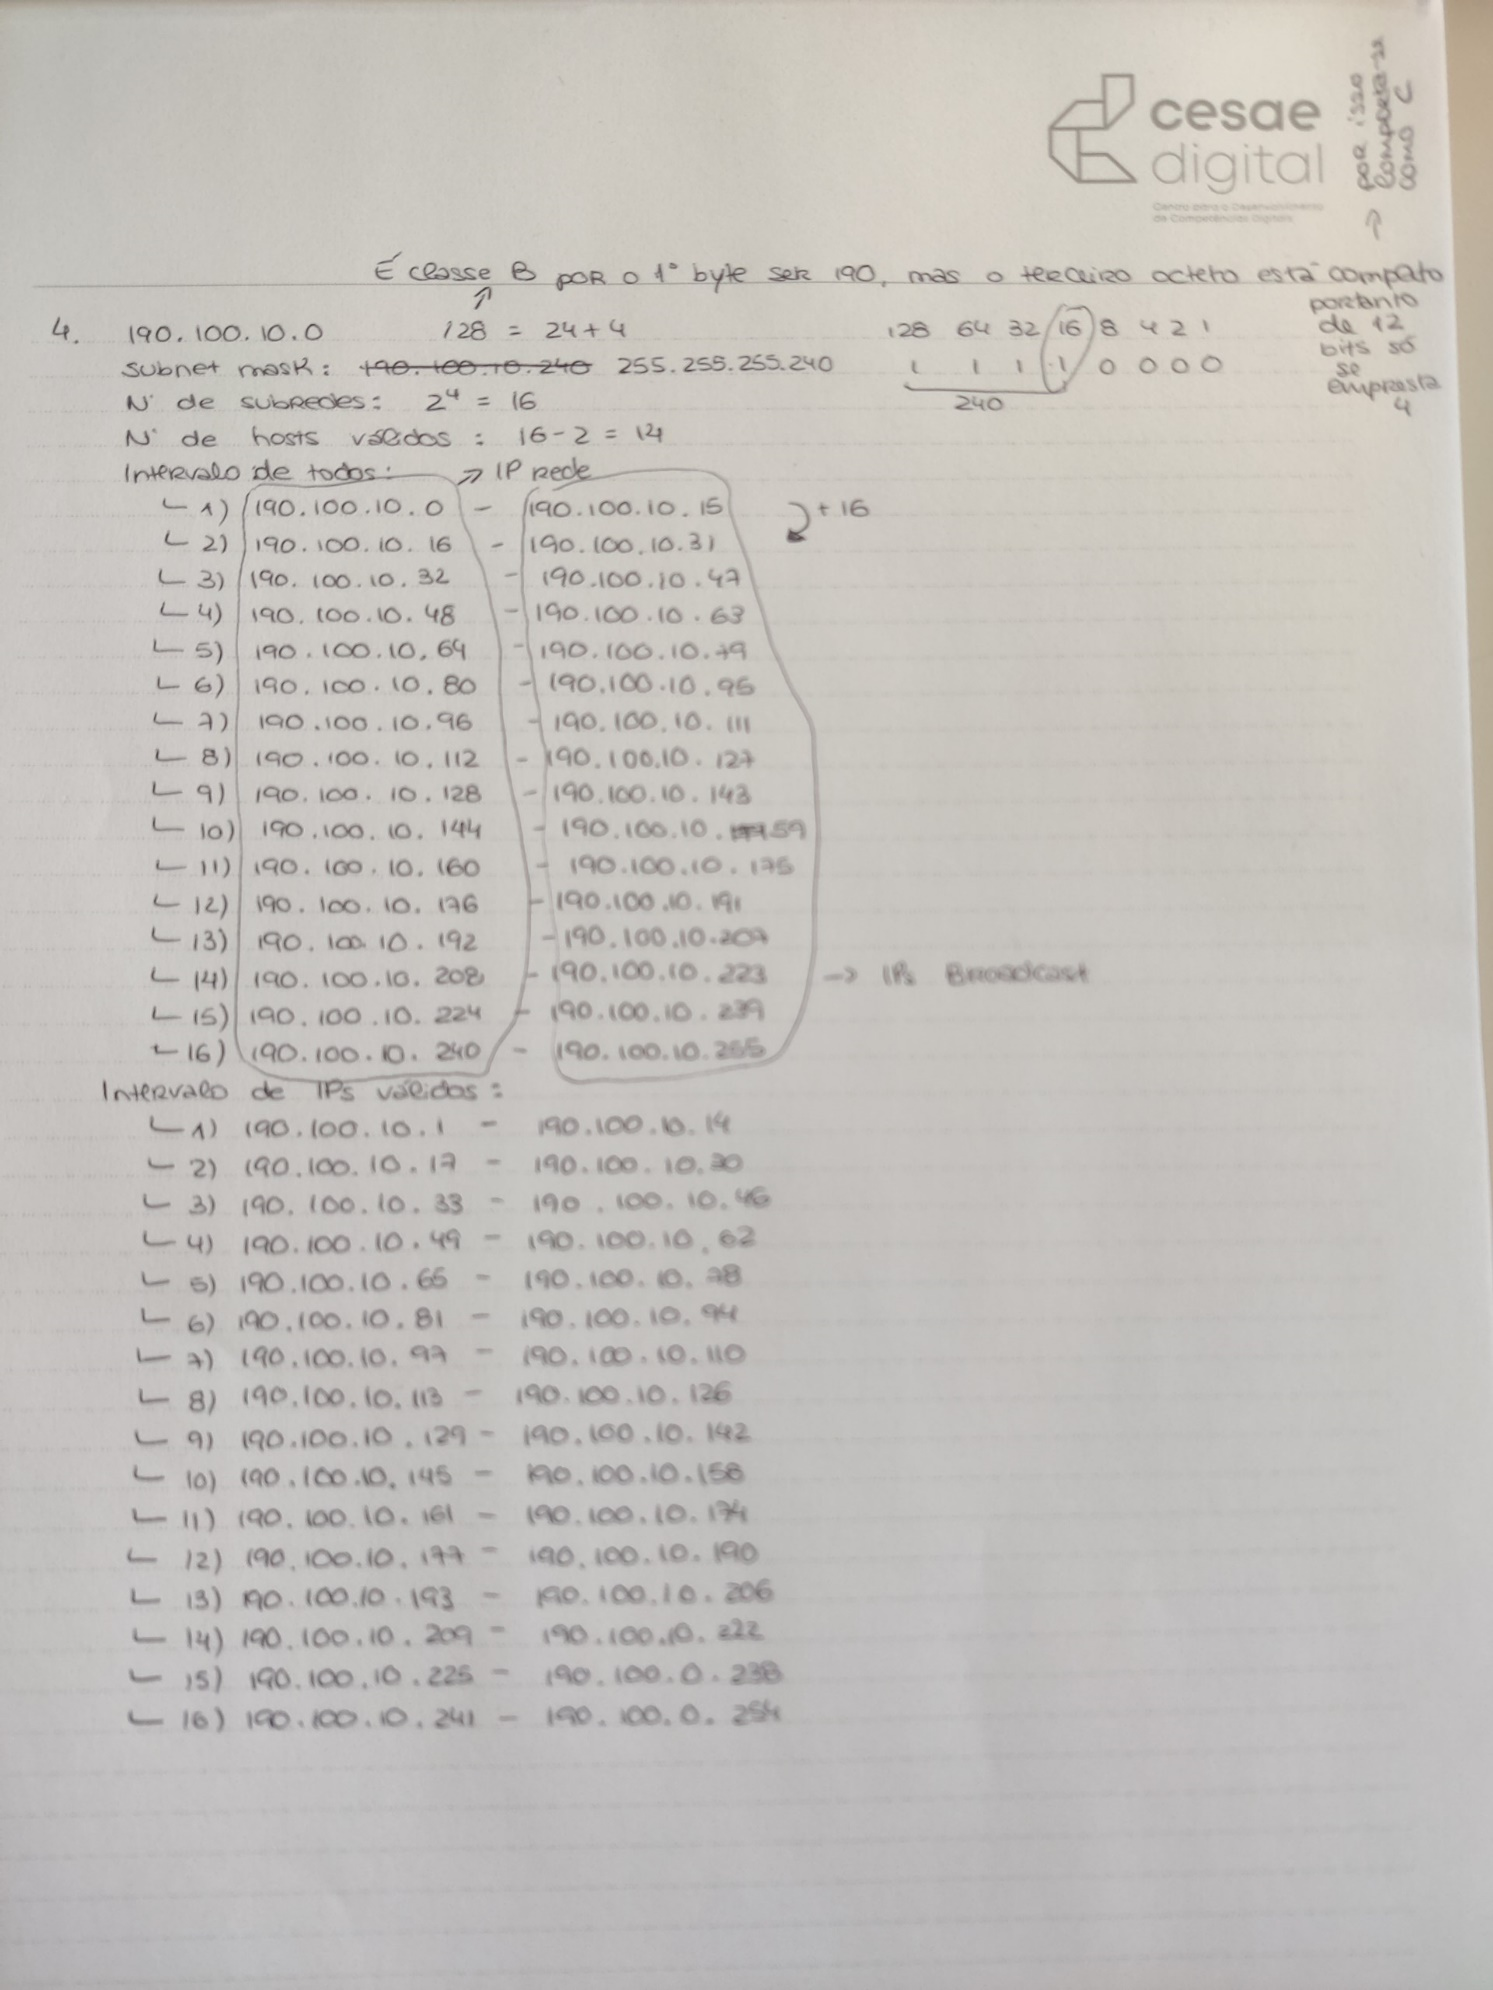 cesae
digital
Centro para o Desenvolvimento
de Competências Digitais
É classe B por o 1º byte ser 190, mas o terceiro octeto está completo
↑ por isso
comporta-se
como C
portanto
de 12
bits só
se
empresta
4
4. 190.100.10.0 /28 = 24+4
128 64 32 16 8 4 2 1
1 1 1 1 0 0 0 0
240
Subnet mask: 190.100.10.240 255.255.255.240
Nº de subredes: 2⁴ = 16
Nº de hosts válidos: 16-2 = 14
Intervalo de todos: → IP rede
1) 190.100.10.0 - 190.100.10.15 +16
2) 190.100.10.16 - 190.100.10.31
3) 190.100.10.32 - 190.100.10.47
4) 190.100.10.48 - 190.100.10.63
5) 190.100.10.64 - 190.100.10.79
6) 190.100.10.80 - 190.100.10.95
7) 190.100.10.96 - 190.100.10.111
8) 190.100.10.112 - 190.100.10.127
9) 190.100.10.128 - 190.100.10.143
10) 190.100.10.144 - 190.100.10.159
11) 190.100.10.160 - 190.100.10.175
12) 190.100.10.176 - 190.100.10.191
13) 190.100.10.192 - 190.100.10.207
14) 190.100.10.208 - 190.100.10.223 → IPs Broadcast
15) 190.100.10.224 - 190.100.10.239
16) 190.100.10.240 - 190.100.10.255
Intervalo de IPs válidos:
1) 190.100.10.1 - 190.100.10.14
2) 190.100.10.17 - 190.100.10.30
3) 190.100.10.33 - 190.100.10.46
4) 190.100.10.49 - 190.100.10.62
5) 190.100.10.65 - 190.100.10.78
6) 190.100.10.81 - 190.100.10.94
7) 190.100.10.97 - 190.100.10.110
8) 190.100.10.113 - 190.100.10.126
9) 190.100.10.129 - 190.100.10.142
10) 190.100.10.145 - 190.100.10.158
11) 190.100.10.161 - 190.100.10.174
12) 190.100.10.177 - 190.100.10.190
13) 190.100.10.193 - 190.100.10.206
14) 190.100.10.209 - 190.100.10.222
15) 190.100.10.225 - 190.100.0.238
16) 190.100.10.241 - 190.100.0.254